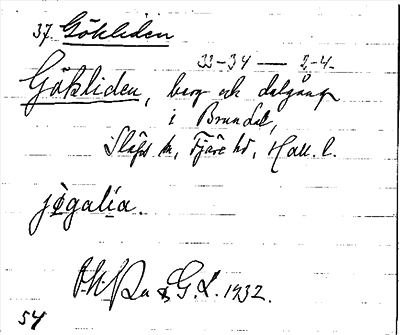 37. Gökliden
33-34 — 2-4.
Gökliden, berg och dalgång
i Brundal,
Släps sn, Fjäre hd, Hall. l.
jøgalia.
& G. L. 1932.
54